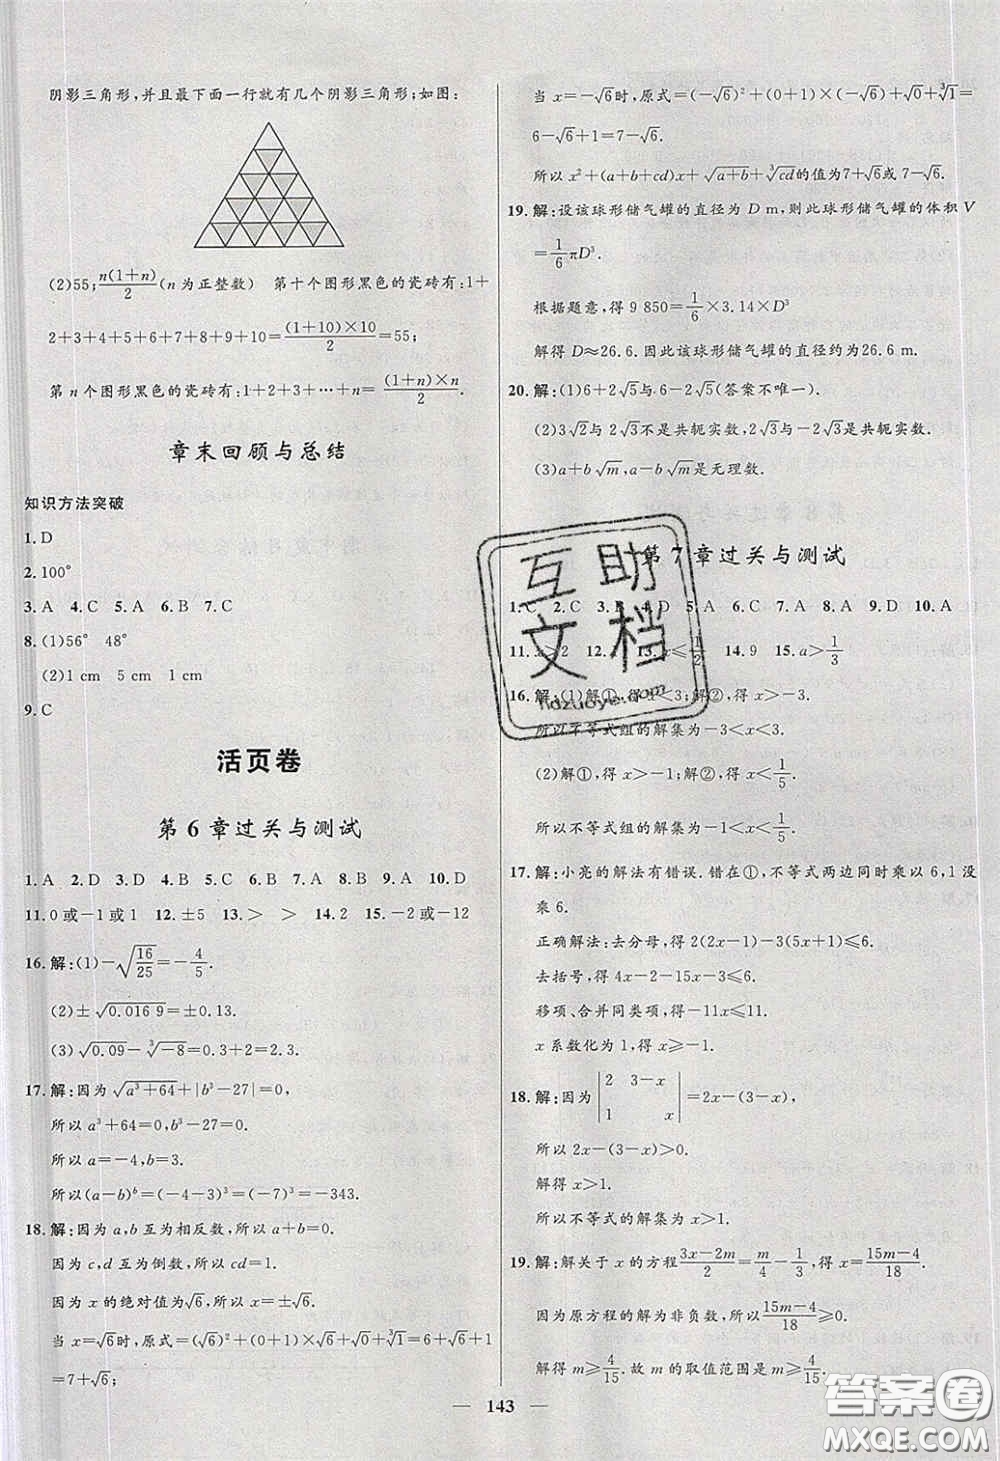 阴影三角形,并且最下面一行就有几个阴影三角形;如图:
(2)55;n(1+n)/2(n 为正整数) 第十个图形黑色的瓷砖有:1+
2+3+4+5+6+7+8+9+10=(1+10)×10/2=55;
第 n 个图形黑色的瓷砖有:1+2+3+…+n=(1+n)×n/2.
章末回顾与总结
知识方法突破
1.D
2.100°
3.A 4.C 5.A 6.B 7.C
8.(1)56° 48°
(2)1 cm 5 cm
9.C
活页卷
第 6 章过关与测试
1.A 2.D 3.D 4.B 5.C 6.B 7.A 8.B 9.A 10.D
11.0 或-1 或 1 12.±5 13.> > 14.2 15.-2 或-12
16.解:(1)-√(16/25)=-4/5.
(2)±√0.016 9=±0.13.
(3)√0.09-∛-8=0.3+2=2.3.
17.解:因为√(a³+64)+|b³-27|=0,
所以 a³+64=0,b³-27=0.
所以 a=-4,b=3.
所以(a-b)ᵇ=(-4-3)³=(-7)³=-343.
18.解:因为 a,b 互为相反数,所以 a+b=0.
因为 c,d 互为倒数,所以 cd=1.
因为 x 的绝对值为√6,所以 x=±√6.
当 x=√6时,原式=(√6)²+(0+1)×√6+√0+∛1=6+√6+1
=7+√6;
当 x=-√6时,原式=(-√6)²+(0+1)×(-√6)+√0+∛1=
6-√6+1=7-√6.
所以 x²+(a+b+cd)x+√(a+b)+∛cd的值为7+√6或 7-√6.
19.解:设该球形储气罐的直径为 D m,则此球形储气罐的体积 V
=1/6πD³.
根据题意,得 9 850=1/6×3.14×D³
解得 D≈26.6.因此该球形储气罐的直径约为 26.6 m.
20.解:(1)6+2√5与 6-2√5(答案不唯一).
(2)3√2与 2√3不是共轭实数,2√3与-2√3是共轭实数.
(3)a+b√m,a-b√m是无理数.
第 7 章过关与测试
1.C 2.C 3.B 4.D 5.A 6.B 7.B 8.A 9.D 10.A
11.x>2 12.4 13.x≤1/2 14.9 15.a>1/3
16.解:(1)解①,得 x<3;解②,得 x>-3.
所以不等式组的解集为-3<x<3.
(2)解①,得 x>-1;解②,得 x<1/5.
所以不等式组的解集为-1<x<1/5.
17.解:小亮的解法有错误.错在①,不等式两边同时乘以 6,1 没
乘 6.
正确解法:去分母,得 2(2x-1)-3(5x+1)≤6.
去括号,得 4x-2-15x-3≤6.
移项、合并同类项,得-11x≤11.
x 系数化为 1,得 x≥-1.
18.解:因为|2 3-x
1 x|=2x-(3-x),
所以 2x-(3-x)>0.
解得 x>1.
所以不等式的解集为 x>1.
19.解:解关于 x 的方程(3x-2m)/2=m/4-1/3,得 x=(15m-4)/18.
因为原方程的解为非负数,所以(15m-4)/18≥0.
解得 m≥4/15.故 m 的取值范围是 m≥4/15.
143
互助
文档
hdzuoye.com
答案圈
MXQE.COM